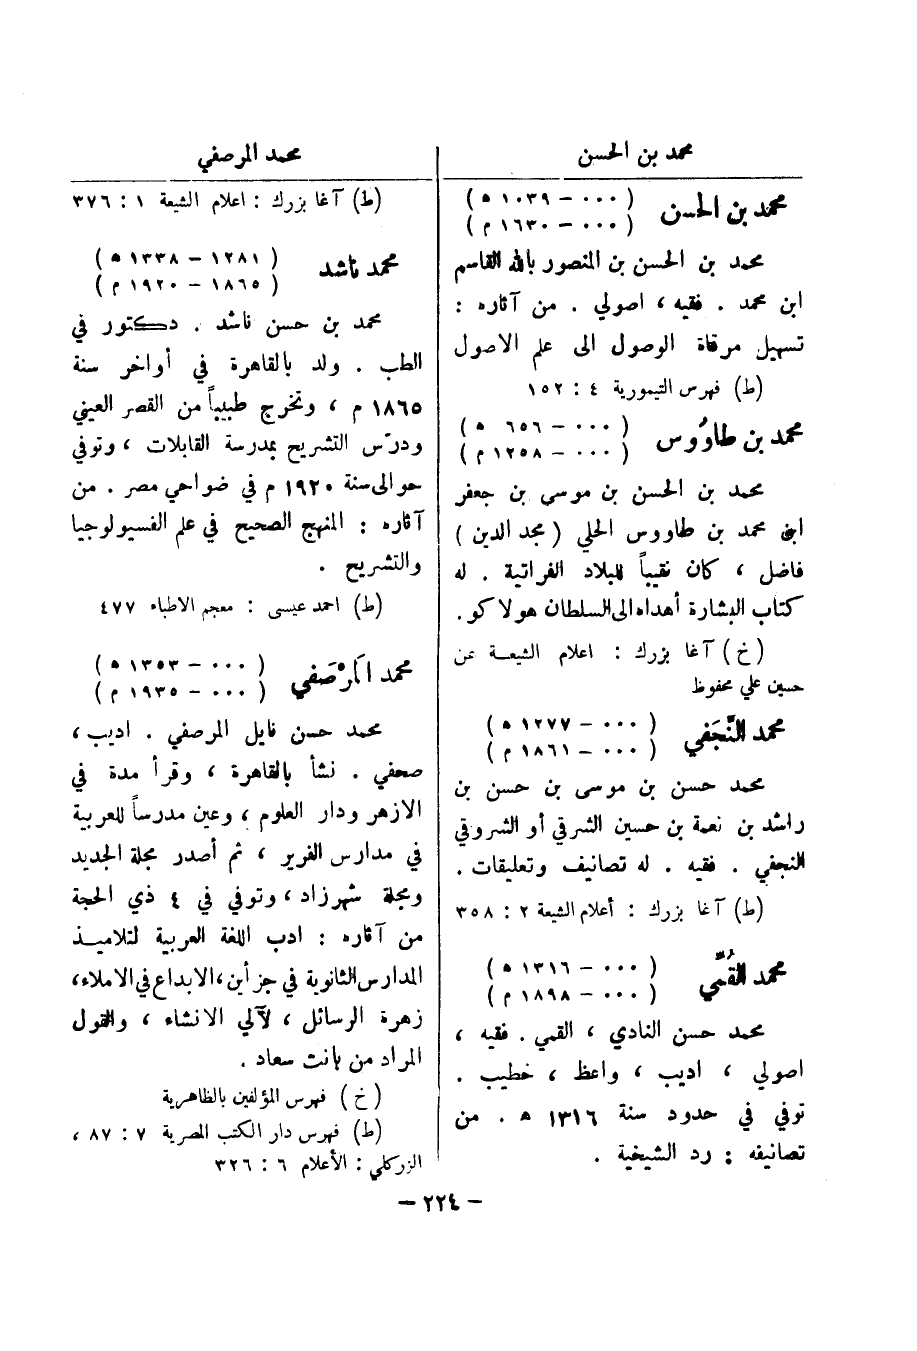 محمد بن الحسن
محمد بن الحسن
( ٠٠٠ – ١٠٣٩ ه )
( ٠٠٠ – ١٦٣٠ م )
محمد بن الحسن بن المنصور بالله القاسم
ابن محمد . فقيه ، اصولي . من آثاره :
تسهيل مرقاة الوصول الى علم الاصول
(ط) فهرس التيمورية ٤ : ١٥٢
محمد بن طاوُوس
( ٠٠٠ – ٦٥٦ ه )
( ٠٠٠ – ١٢٥٨ م )
محمد بن الحسن بن موسى بن جعفر
ابن محمد بن طاووس الحلي ( مجد الدين )
فاضل ، كان نقيباً للبلاد الفراتية . له
كتاب البشارة أهداه الى السلطان هولاكو .
( خ ) آغا بزرك : اعلام الشيعة عن
حسين علي محفوظ
محمد النَّجَفي
( ٠٠٠ – ١٢٧٧ ه )
( ٠٠٠ – ١٨٦١ م )
محمد حسن بن موسى بن حسن بن
راشد بن نعمة بن حسين الشرقي أو الشروقي
النجفي . فقيه . له تصانيف وتعليقات .
(ط) آغا بزرك : أعلام الشيعة ٢ : ٣٥٨
محمد القُمِّي
( ٠٠٠ – ١٣١٦ ه )
( ٠٠٠ – ١٨٩٨ م )
محمد حسن النادي ، القمي . فقيه ،
اصولي ، اديب ، واعظ ، خطيب .
توفي في حدود سنة ١٣١٦ ه . من
تصانيفه : رد الشيخية .
محمد المرصفي
(ط) آغا بزرك : اعلام الشيعة ١ : ٣٧٦
محمد ناشد
( ١٢٨١ – ١٣٣٨ ه )
( ١٨٦٥ – ١٩٢٠ م )
محمد بن حسن ناشد . دكتور في
الطب . ولد بالقاهرة في أواخر سنة
١٨٦٥ م ، وتخرج طبيباً من القصر العيني
ودرّس التشريح بمدرسة القابلات ، وتوفي
حوالى سنة ١٩٢٠ م في ضواحي مصر . من
آثاره : المنهج الصحيح في علم الفسيولوجيا
والتشريح .
(ط) احمد عيسى : معجم الاطباء ٤٧٧
محمد المَرْصَفي
( ٠٠٠ – ١٣٥٣ ه )
( ٠٠٠ – ١٩٣٥ م )
محمد حسن نايل المرصفي . اديب ،
صحفي . نشأ بالقاهرة ، وقرأ مدة في
الازهر ودار العلوم ، وعين مدرساً للعربية
في مدارس الفرير ، ثم أصدر مجلة الجديد
ومجلة شهرزاد ، وتوفي في ٤ ذي الحجة
من آثاره : ادب اللغة العربية لتلاميذ
المدارس الثانوية في جزأين ، الابداع في الاملاء ،
زهرة الرسائل ، لآلي الانشاء ، والقول
المراد من بانت سعاد .
( خ ) فهرس المؤلفين بالظاهرية
(ط) فهرس دار الكتب المصرية ٧ : ٨٧ ،
الزركلي : الأعلام ٦ : ٣٢٦
– ٢٢٤ –